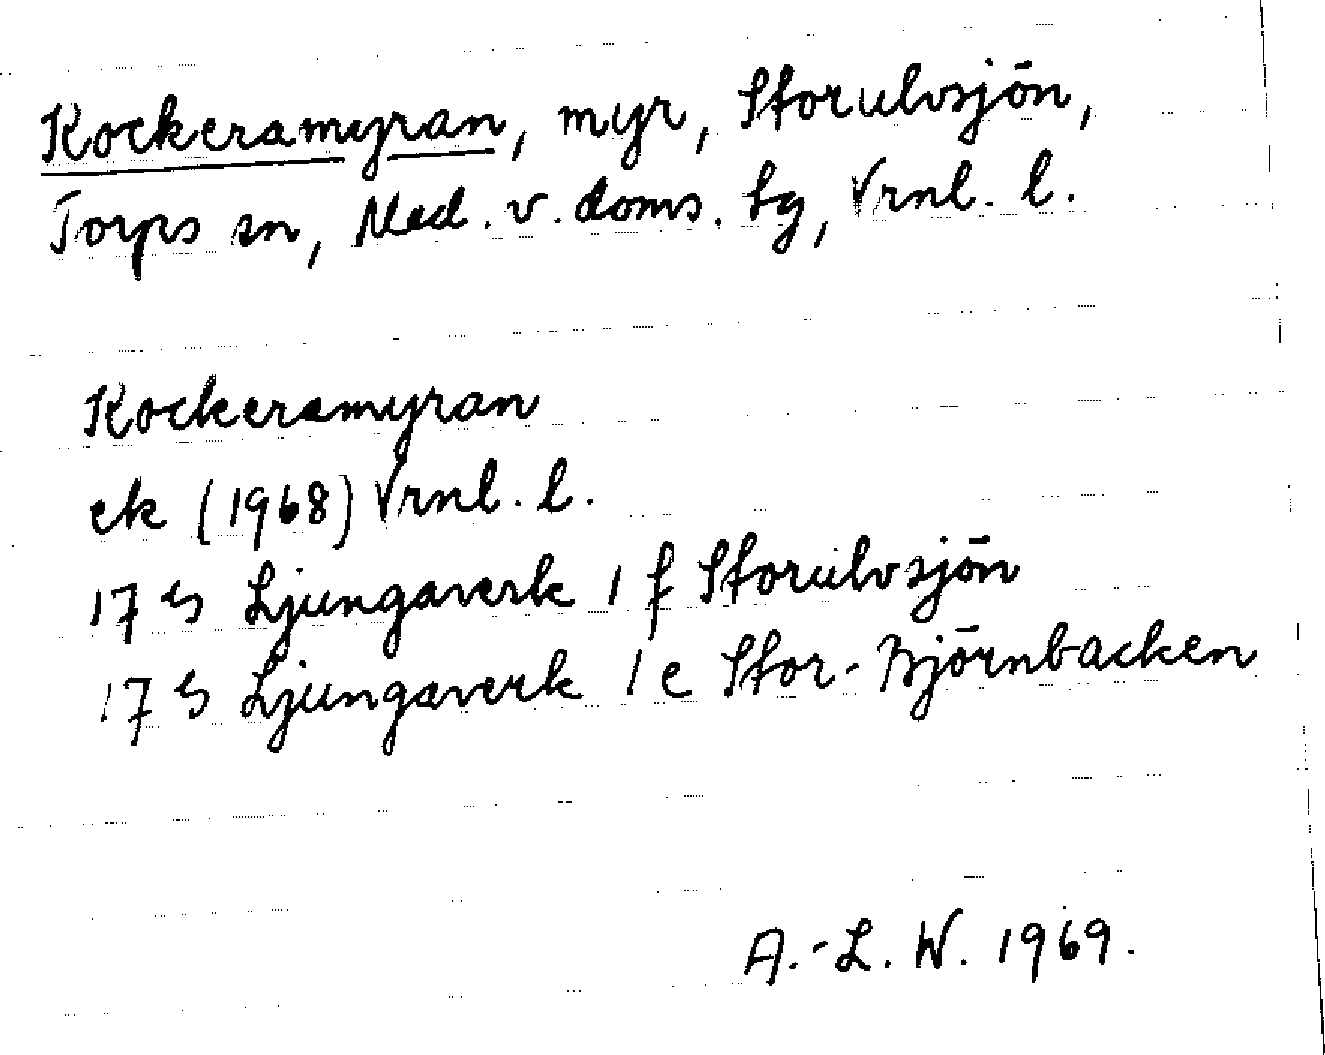 Kockeramyran, myr, Storulvsjön,
Torps sn, Med. v. doms. tg, Vrnl. l.
Kockeramyran
ek (1968) Vrnl. l.
17 G Ljungaverk 1 f Storulvsjön
17 G Ljungaverk 1 e Stor-Björnbacken
A.-L. W. 1969.